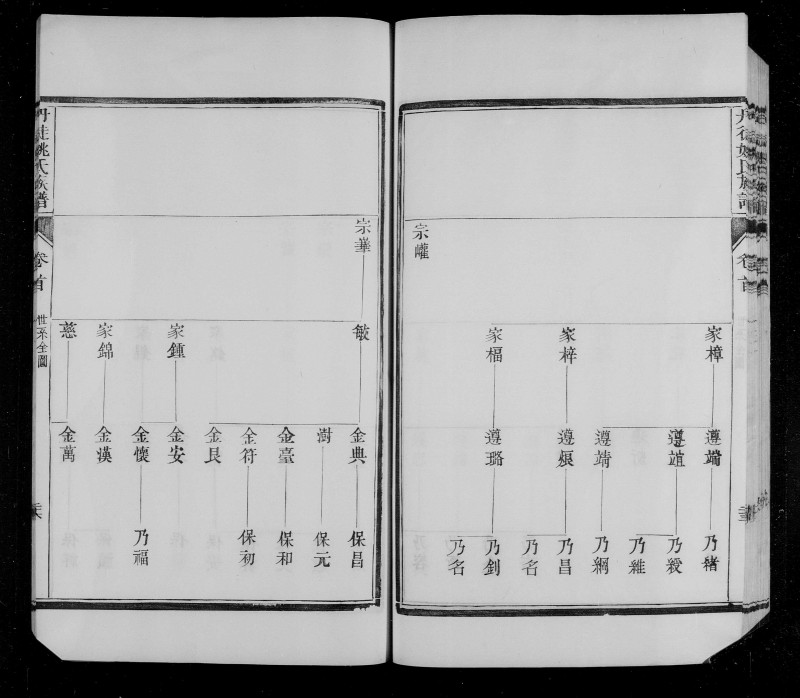 宗巏
家樟
家梓
家楅
遵端
遵誼
遵靖
遵振
遵璐
乃緒
乃綬
乃維
乃綱
乃昌
乃名
乃釗
乃名
宗華
敏
家鍾
家錦
慈
金典
澍
金臺
金符
金艮
金安
金懷
金漢
金萬
保昌
保元
保和
保初
乃福
丹徒姚氏族譜
卷首
世系全圖